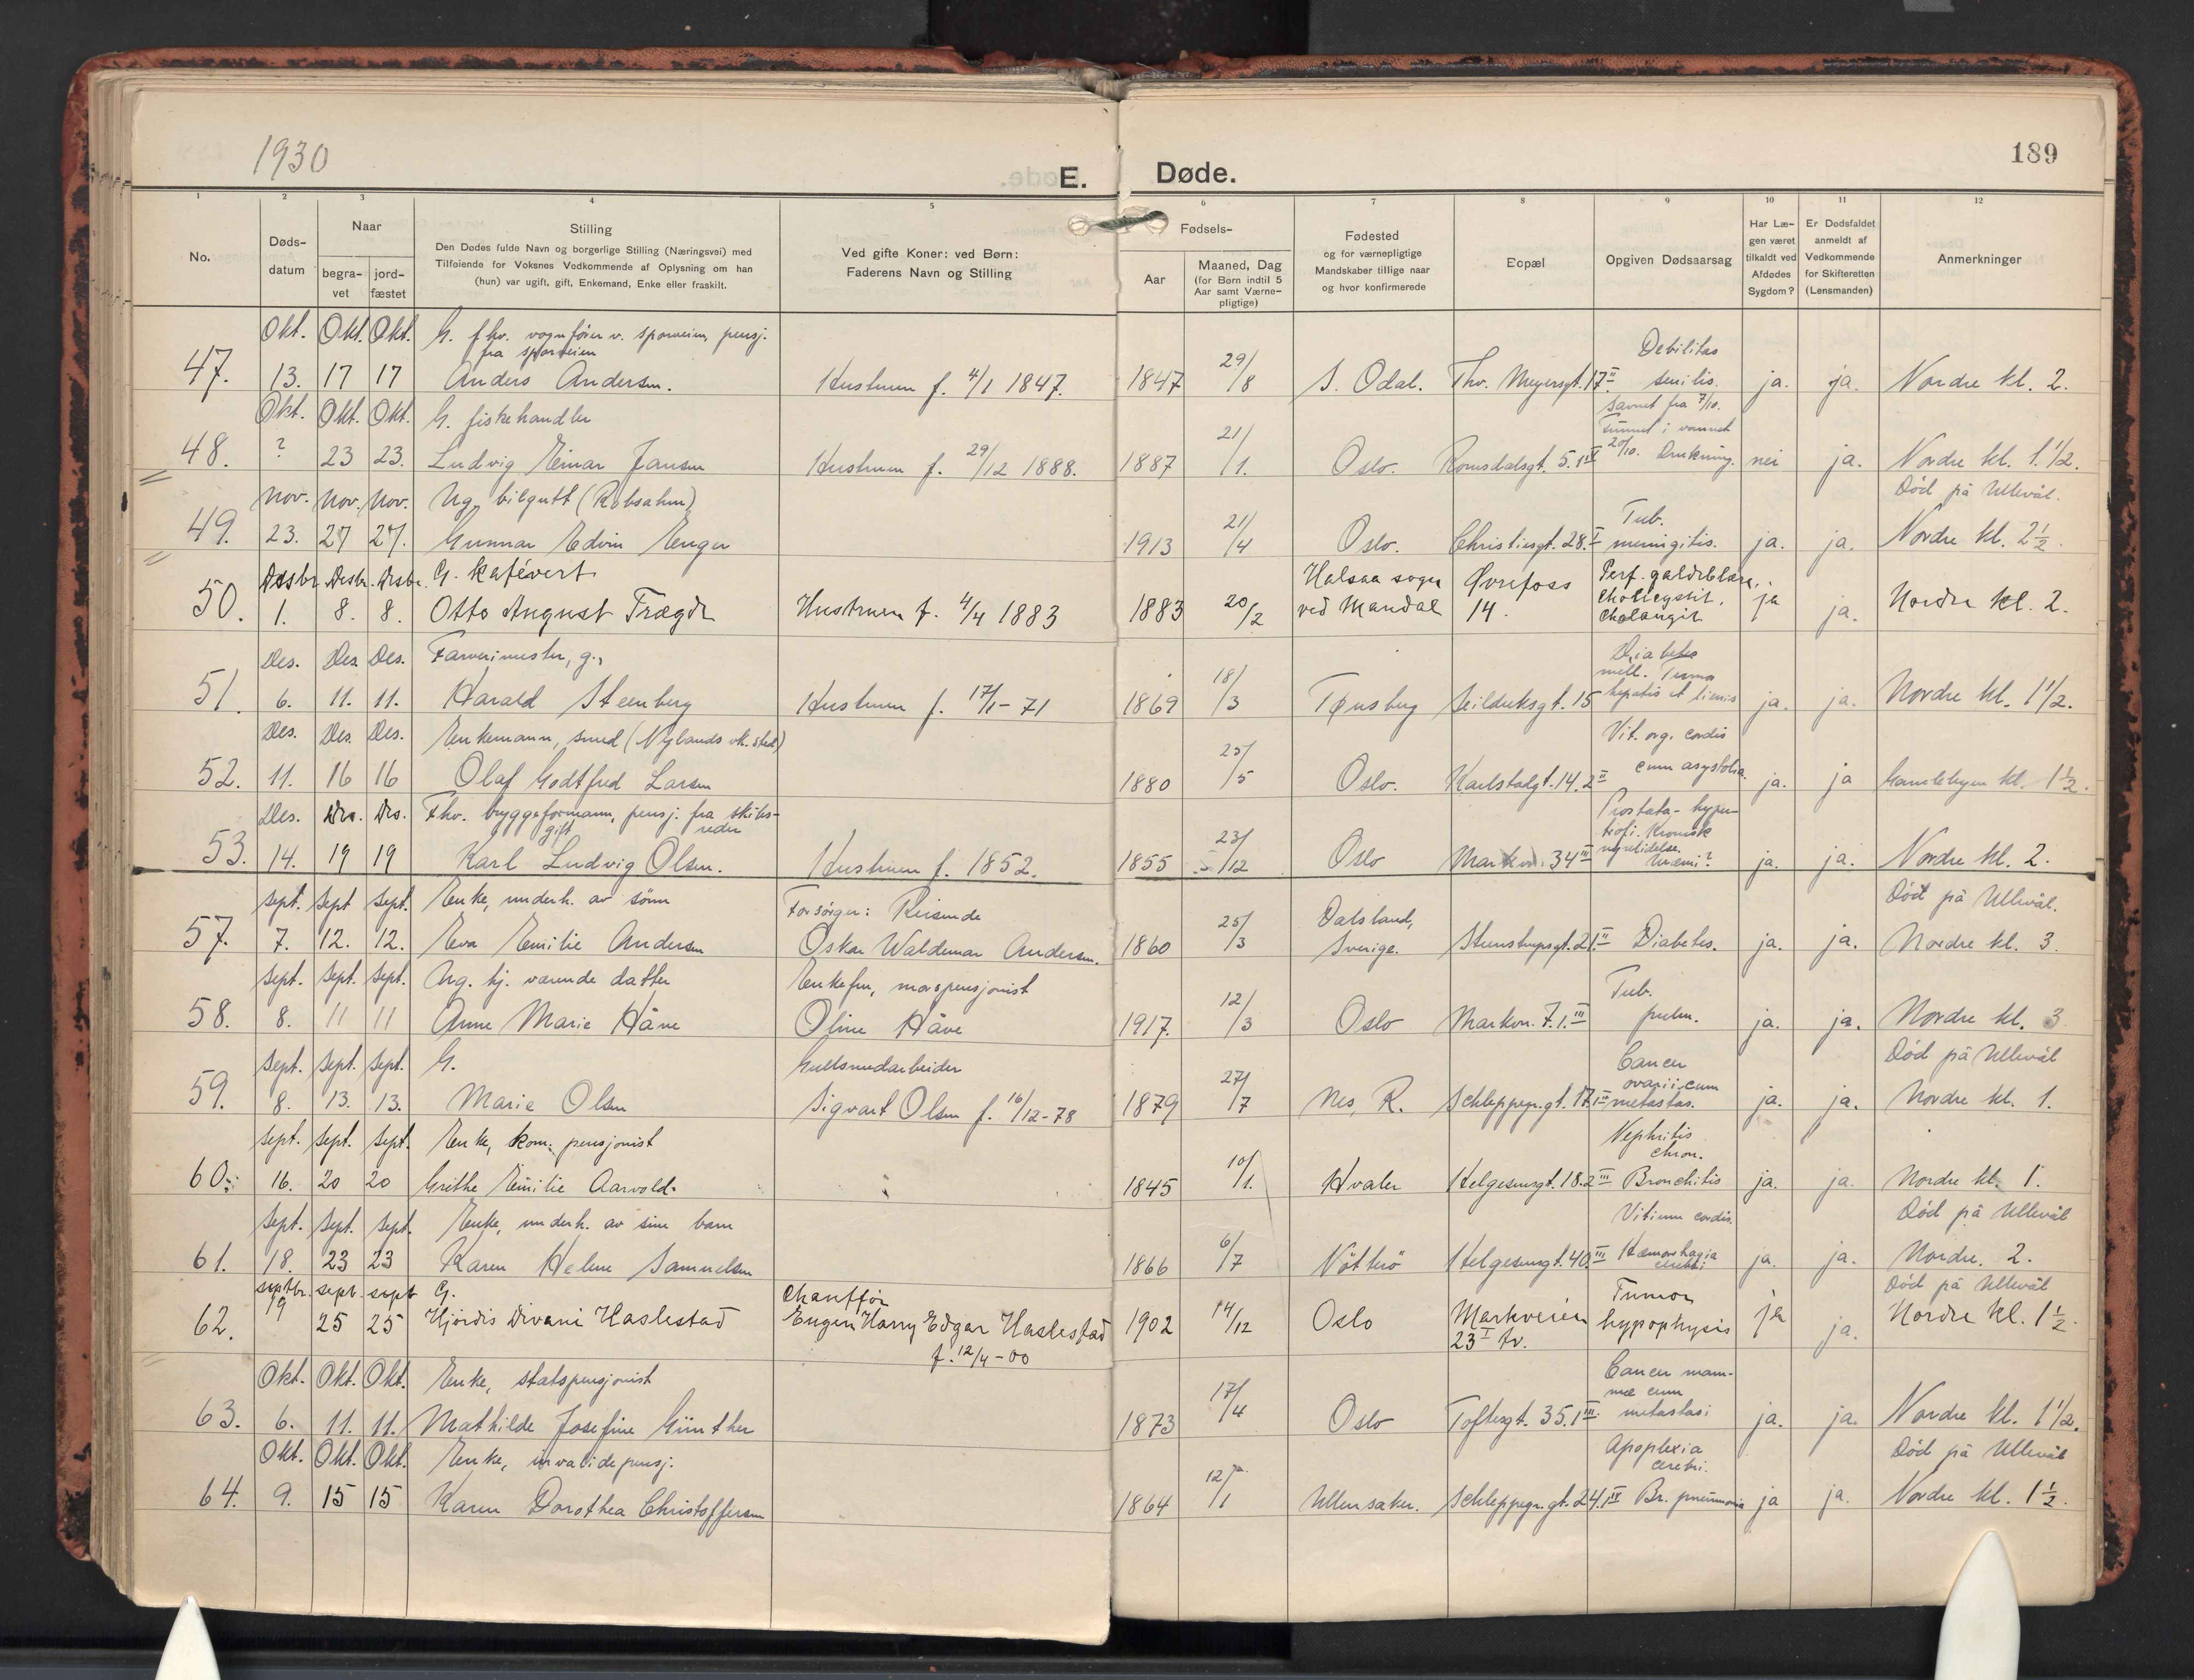 1930
E. Døde.
189
1 2 3 4 5 6 7 8 9 10 11 12
No.
Døds-
datum
Naar
begra-
vet
jord-
fæstet
Stilling
Den Dødes fulde Navn og borgerlige Stilling (Næringsvei) med
Tilføiende for Voksnes Vedkommende af Oplysning om han
(hun) var ugift, gift, Enkemand, Enke eller fraskilt.
Ved gifte Koner: ved Børn:
Faderens Navn og Stilling
Fødsels-
Aar
Maaned, Dag
(for Børn indtil 5
Aar samt Værne-
pligtige)
Fødested
og for værnepligtige
Mandskaber tillige naar
og hvor konfirmerede
Bopæl
Opgiven Dødsaarsag
Har Læ-
gen været
tilkaldt ved
Afdødes
Sygdom?
Er Dødsfaldet
anmeldt af
Vedkommende
for Skifteretten
(Lensmanden)
Anmerkninger
Okt. Okt. Okt. G. fhv. vognfører v. sporveien, pensj.
fra sporveien Debilitas
47. 13. 17 17 Anders Andersen. Hustruen f. 4/1 1847. 1847 29/8 S. Odal. Thv. Meyersgt. 17 II senilis. ja. ja. Nordre kl. 2.
Okt. Okt. Okt. G. fiskehandler Savnet fra 7/10.
Funnet i vannet
48. ? 23 23. Ludvig Einar Jansen Hustruen f. 29/12 1888. 1887 21/1. Oslo. Romsdalsgt. 5. 20/10. Drukning. nei ja. Nordre kl. 1.1/2.
Nov. Nov. Nov. Ug. bilgutt (Robsahm) Tub. Død på Ullevål.
49. 23. 27 27. Gunnar Edvin Enger 1913 21/4 Oslo. Christiesgt. 28. I meningitis. ja. ja. Nordre kl. 2 1/2.
Desbr. Desbr. Desbr. G. Kafévert Halsaa sogn Øvrefoss Perf. galdeblære,
50. 1. 8. 8. Otto August Trægde Hustruen f. 4/4 1883 1883 20/2 ved Mandal 14. cholecystit. ja ja. Nordre kl. 2.
cholangit.
Des. Des. Des. Farverimester, g., Diabetes
mell. Tumor
51. 6. 11. 11. Harald Steenberg Hustruen f. 17/1-71 1869 18/3 Tønsberg Seilduksgt. 15 hepatis et lienis ja. ja. Nordre kl. 1 1/2.
Des. Des. Des. Enkemann, smed (Nylands vk.sted) Vit. org. cordis
52. 11. 16 16 Olaf Godtfred Larsen 1880 25/5 Oslo. Karlstadgt. 14. 2 II cum asystolia. ja. ja Gamlebyen kl. 1 1/2.
Des. Des. Des. Fhv. bryggeformann, pensj. fra skibs-
gift reder Prostata-hyper-
trofi. Kronisk
nyrelidelse.
53. 14. 19 19 Karl Ludvig Olsen. Hustruen f. 1852. 1855 23/12 Oslo Markvn. 34 III Uræmi? ja. ja. Nordre kl. 2.
Sept. Sept Sept. Enke, underh. av sønn Forsørger: Reisende Dalsland, Død på Ullevål.
57. 7. 12. 12. Eva Emilie Andersen Oskar Waldemar Andersen. 1860 25/3 Sverige. Steenstrupsgt. 21. II Diabetes. ja. ja. Nordre kl. 3.
Sept. Sept. Sept. Ug. hj. værende datter Enkefru, morspensjonist Tub.
58. 8. 11 11 Anne Marie Håve Oline Håve 1917. 12/3 Oslo Markvn. 7. 1. III pulm. ja. ja. Nordre kl. 3.
Sept. Sept. Sept. G. Gullsmedarbeider Cancer Død på Ullevål
ovarii cum
59. 8. 13. 13. Marie Olsen Sigvart Olsen f. 16/12-78 1879 27/7 Nes, R. Schleppegr.gt. 17. 1 II metastas. ja. ja. Nordre kl. 1.
Sept. Sept. Sept. Enke, kom. pensjonist Nephritis
chron.
60. 16. 20 20 Grethe Emilie Aarvold. 1845 10/1. Hvaler Helgesensgt. 18. 2 III Bronchitis ja. ja. Nordre kl. 1.
Sept. Sept. Sept. Enke, underh. av sine barn Vitium cordis. Død på Ullevål
61. 18. 23 23 Karen Helene Samuelsen 1866 6/7 Nøtterö Helgesensgt. 40. III Hæmorhagia
cerebri ja. ja. Nordre. 2.
Septbr. Sept. Sept G. Chauffør Tumor Død på Ullevål
62. 19 25 25 Hjørdis Divani Haslestad Eugen Harry Edgar Haslestad 1902 14/12 Oslo Markveien hypophysis ja ja. Nordre kl. 1 1/2.
f. 12/4-00 23 I tv.
Okt. Okt. Okt. Enke, statspensjonist Cancer mam-
mæ cum
63. 6. 11. 11. Mathilde Josefine Günther 1873 17/4 Oslo Toftesgt. 35. 1 III metastasi ja. ja. Nordre kl. 1 1/2.
Okt. Okt. Okt. Enke, invalidepensj. Apoplexia
cerebri. Død på Ullevål
64. 9. 15 15 Karen Dorothea Christoffersen 1864 12/1 Ullensaker. Schleppegr.gt. 24. Br. pneumonia ja ja. Nordre kl. 1 1/2.